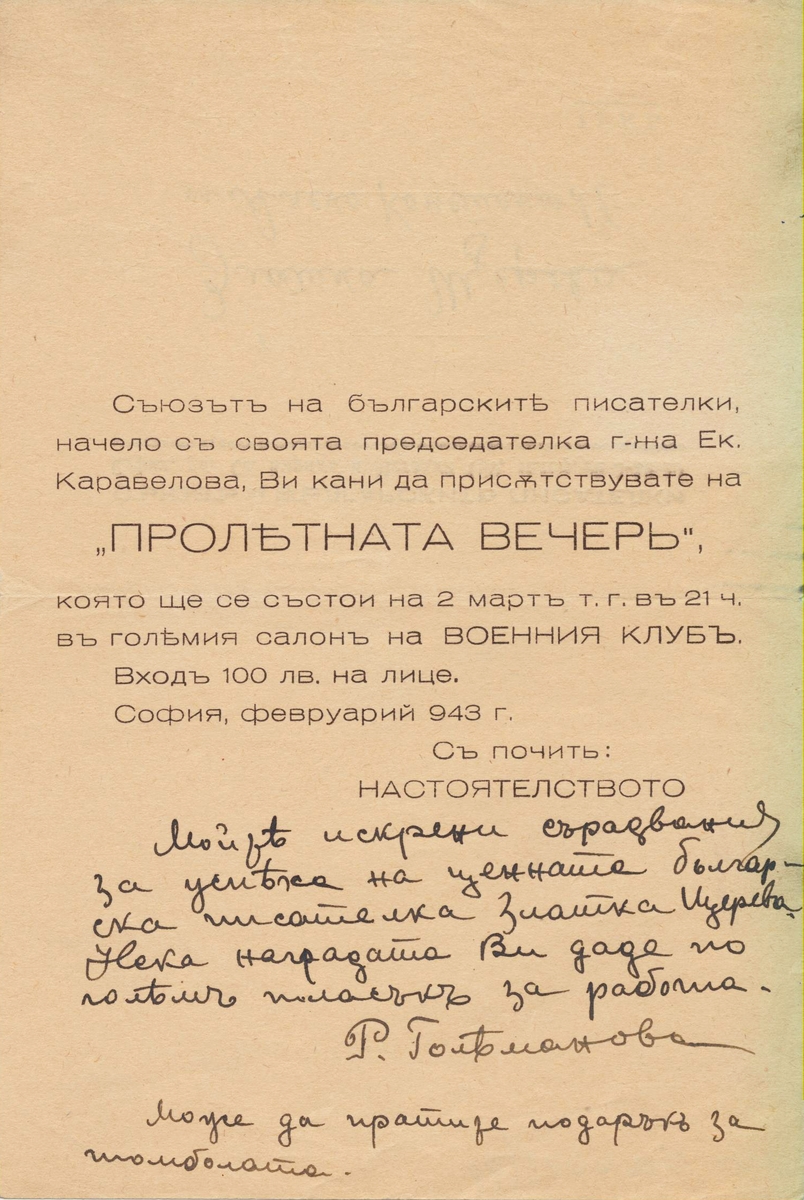 Съюзътъ на българскитѣ писателки,
начело съ своята председателка г-жа Ек.
Каравелова, Ви кани да присѫтствувате на
„ПРОЛѢТНАТА ВЕЧЕРЬ“,
която ще се състои на 2 мартъ т. г. въ 21 ч.
въ голѣмия салонъ на ВОЕННИЯ КЛУБЪ.
Входъ 100 лв. на лице.
София, февруарий 943 г.
Съ почить:
НАСТОЯТЕЛСТВОТО
Мойтѣ искрени сърадвания
за успѣха на ценната българ-
ска писателка Златка Щерева.
Нека наградата Ви даде по
голѣмъ тласъкъ за работа.
Р. Голѣманова
Може да пратите подаръкъ за
томболата.